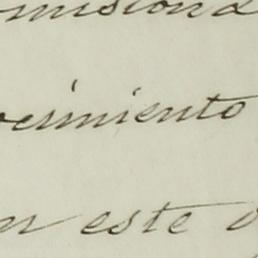 misiona
cimiento
n este